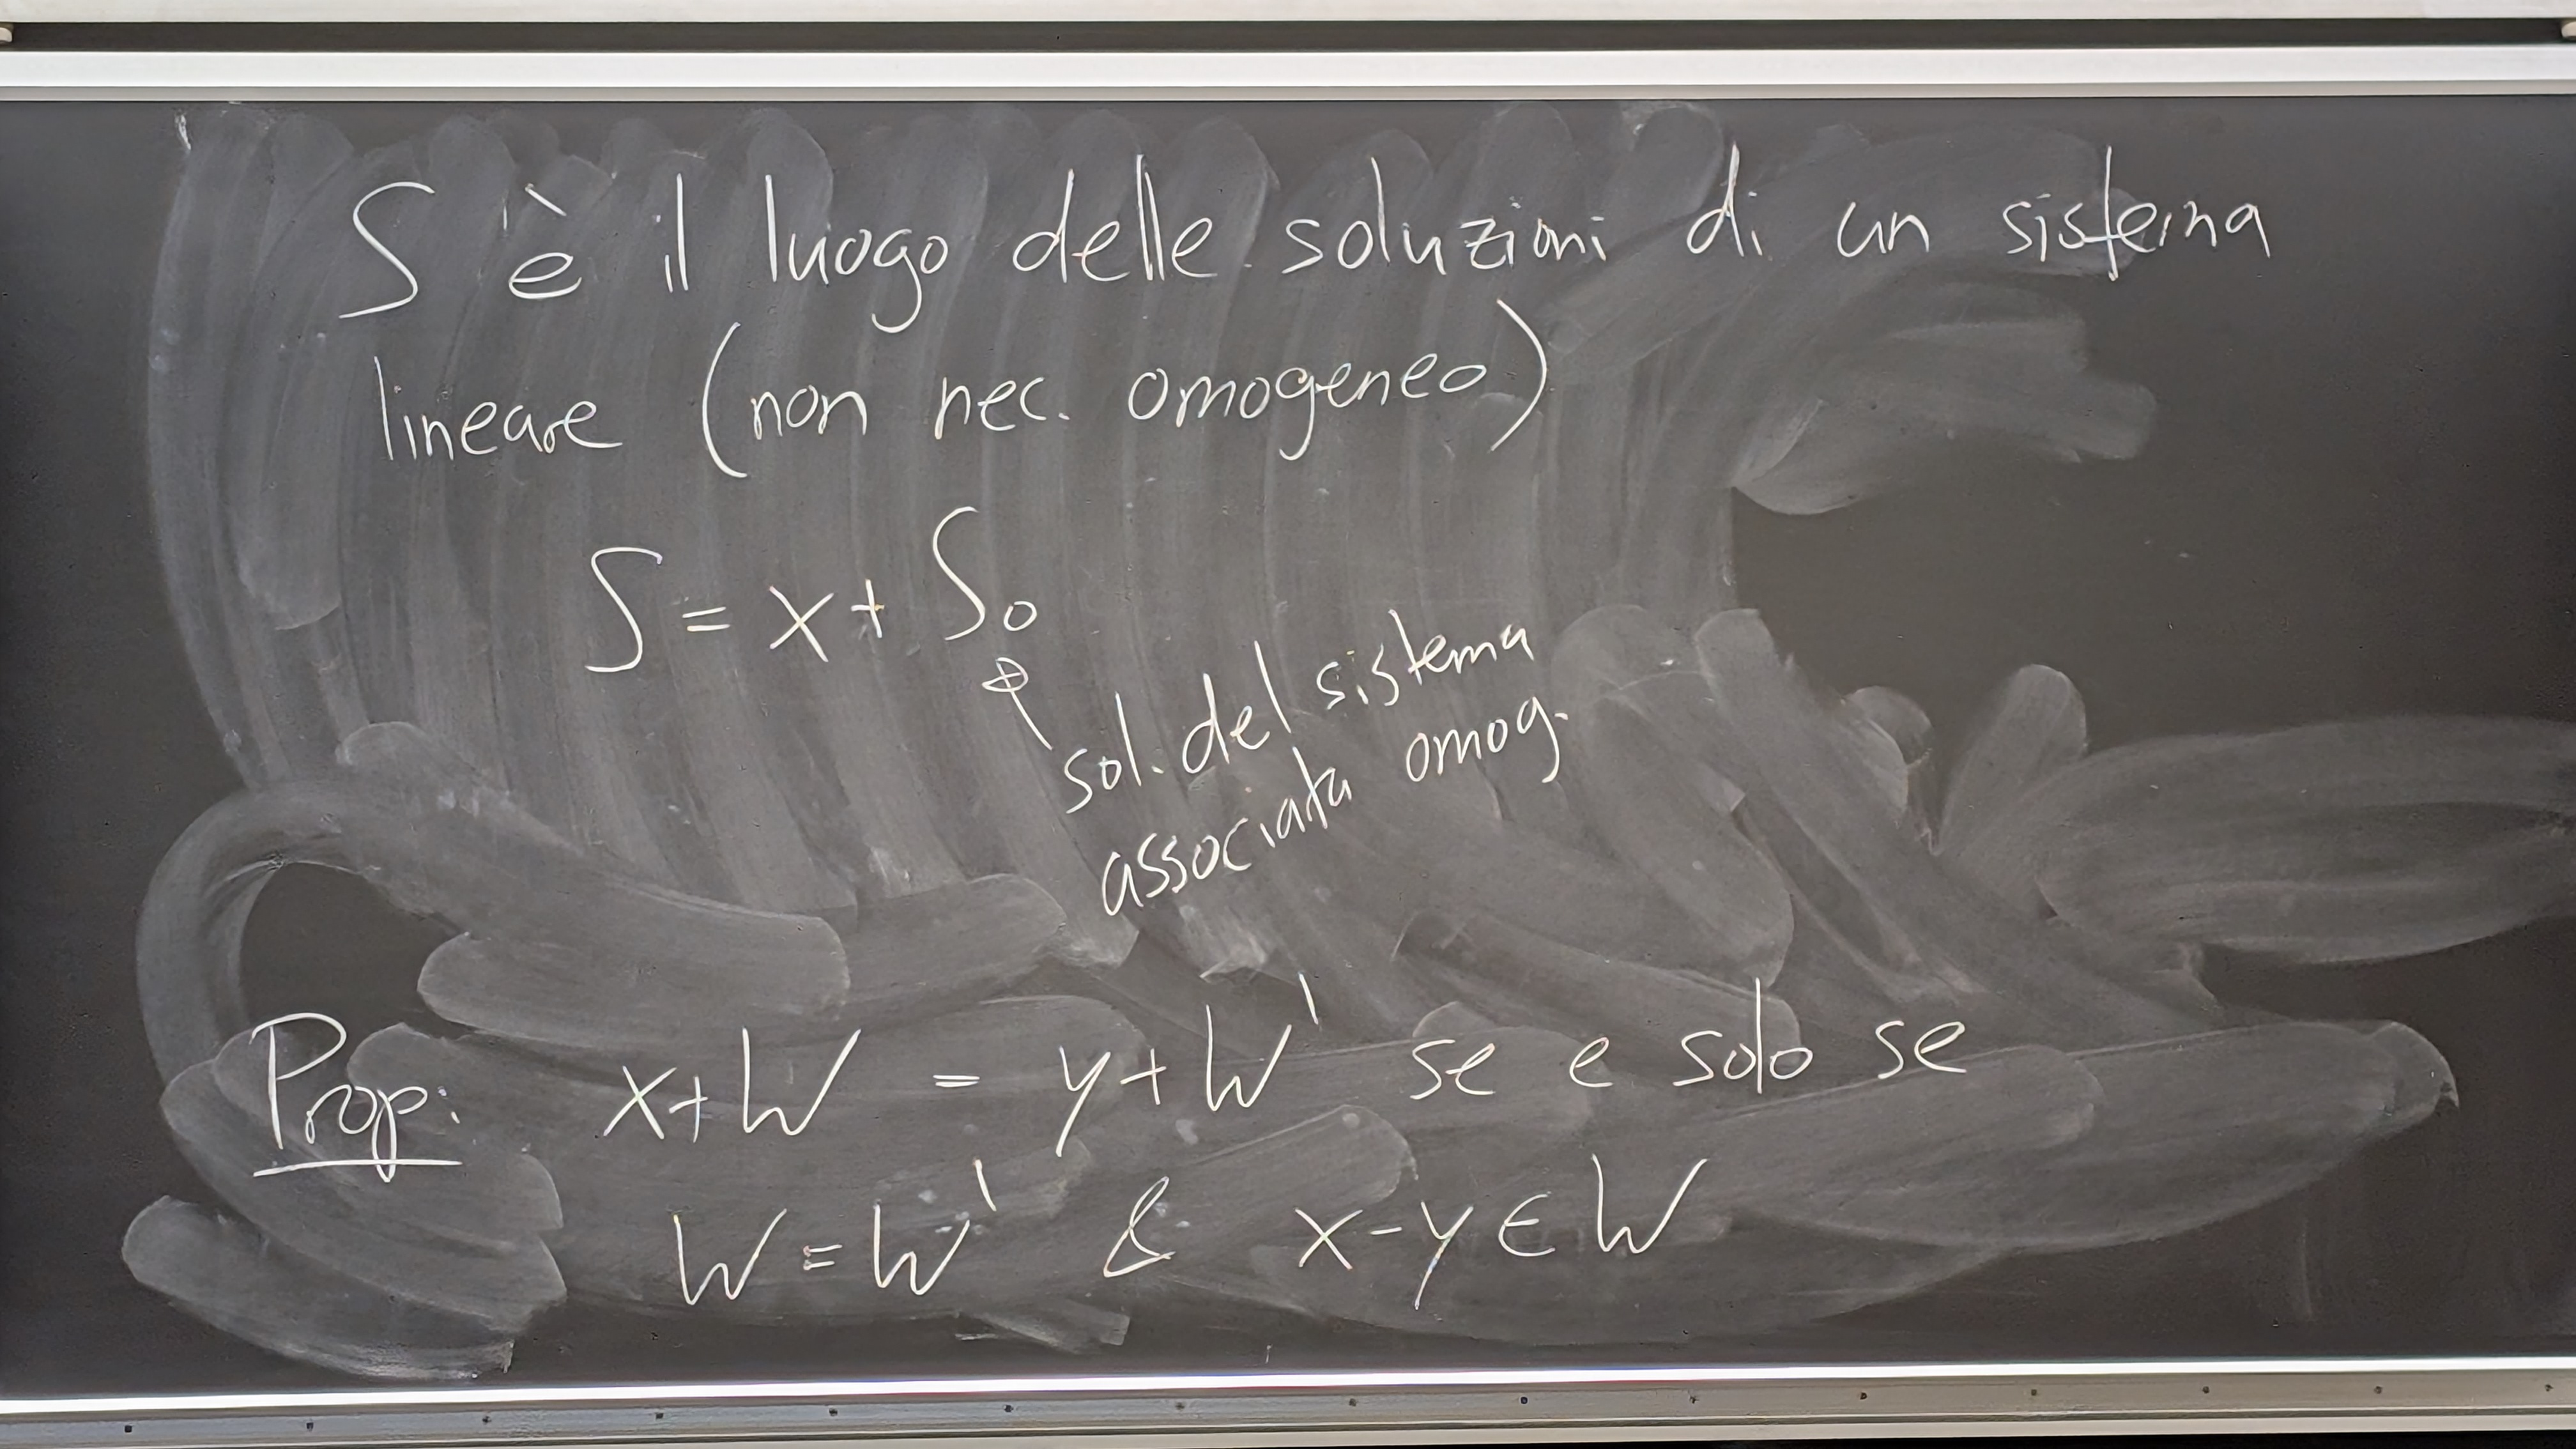 S è il luogo delle soluzioni di un sistema
lineare (non nec. omogeneo)
S = x + S₀
sol. del sistema
associata omog.
Prop: x+W = y+W' se e solo se
W = W' & x-y ∈ W